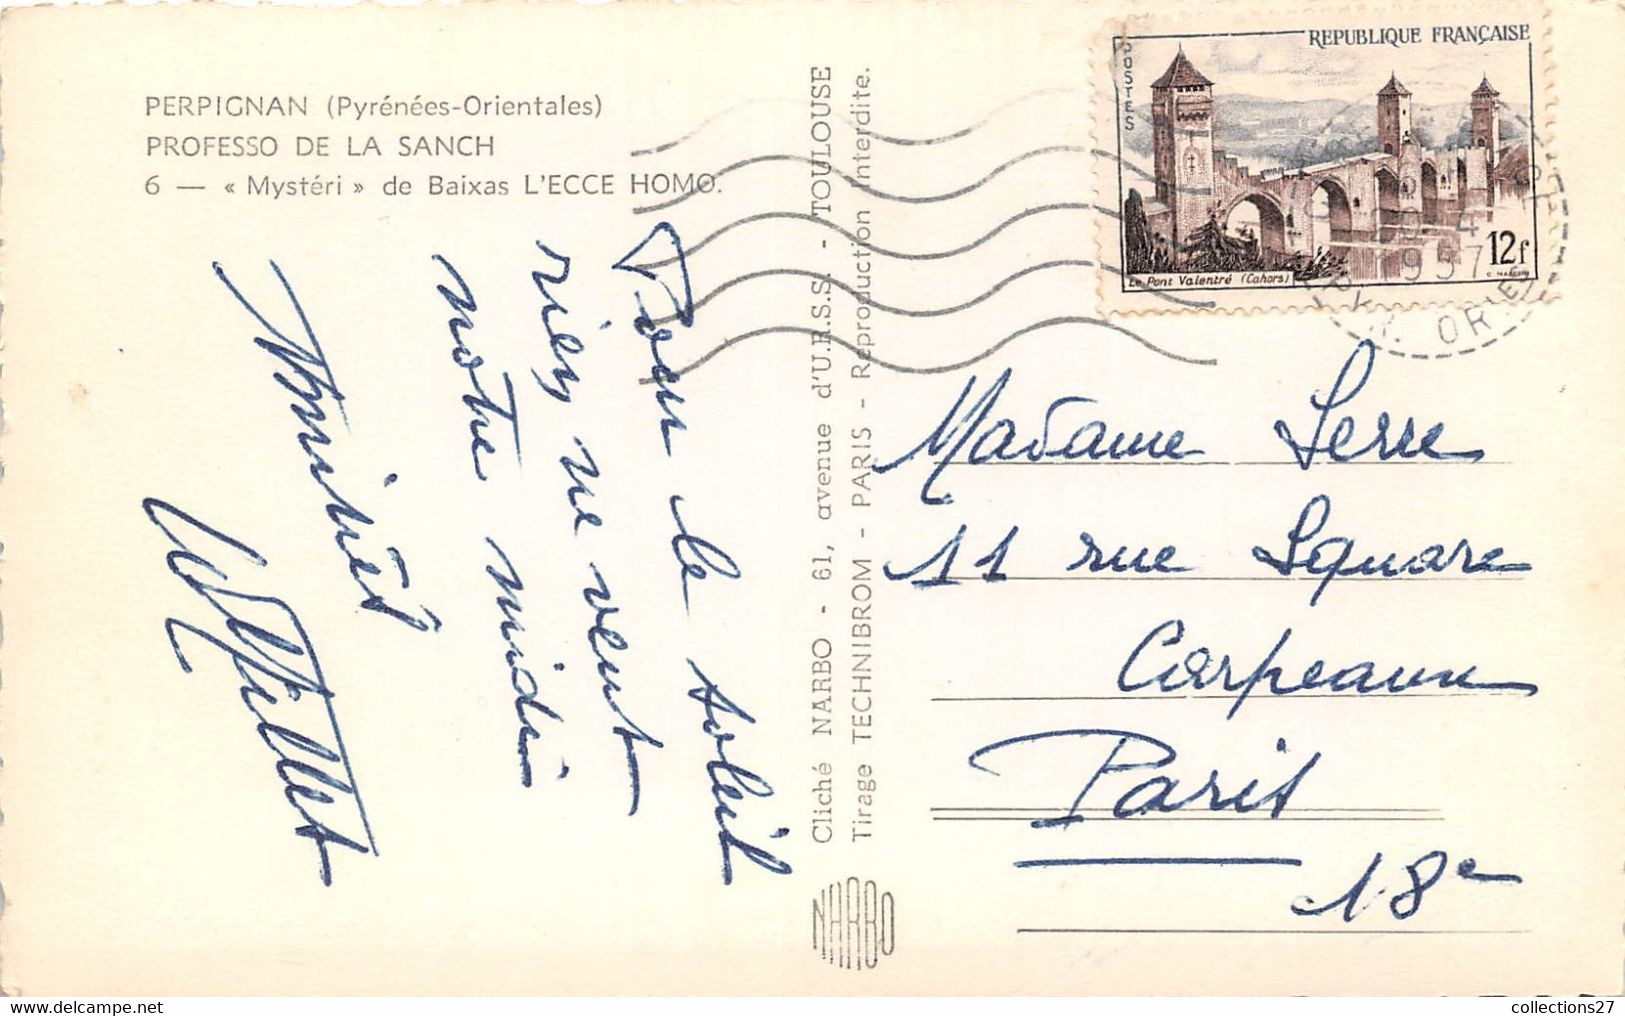 PERPIGNAN (Pyrénées-Orientales)
PROFESSO DE LA SANCH
6 — « Mystéri » de Baixas L'ECCE HOMO.
Pour le soleil
rien ne vaut
notre midi
Amitiés
Cliché NARBO - 61, avenue d'U.R.S.S. - TOULOUSE
Tirage TECHNIBROM - PARIS - Reproduction Interdite.
NARBO
REPUBLIQUE FRANÇAISE
POSTES
12f
Le Pont Valentré (Cahors)
1957
Madame Serre
11 rue Square
Carpeaux
Paris
18e
collections27